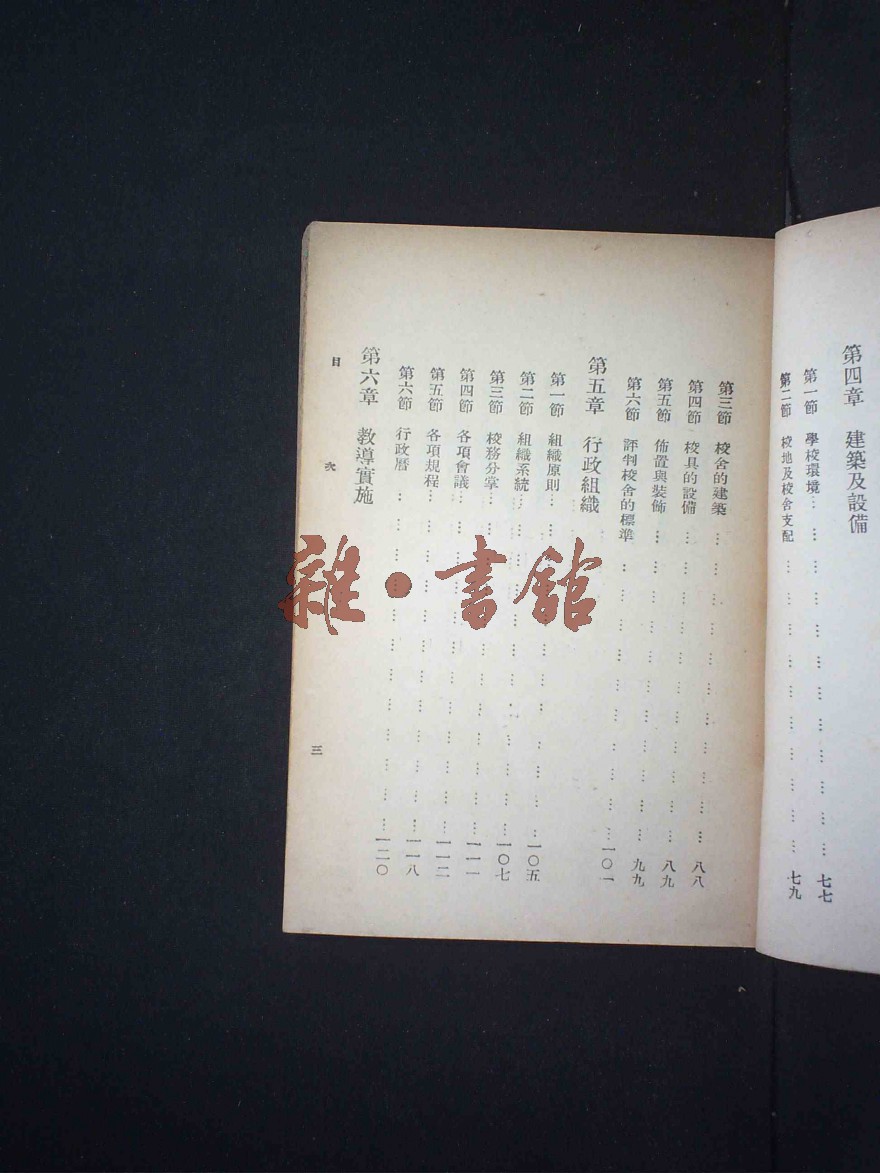 第四章　建築及設備
第一節　學校環境… … … … … … … … … … … 七七
第二節　校地及校舍支配 … … … … … … … … … … 七九
第三節　校舍的建築 … … … … … … … … … … 八八
第四節　校具的設備 … … … … … … … … … … 八九
第五節　佈置與裝飾 … … … … … … … … … … 九九
第六節　評判校舍的標準 … … … … … … … … … …一〇一
第五章　行政組織
第一節　組織原則… … … … … … … … … … …一〇五
第二節　組織系統… … … … … … … … … … …一〇七
第三節　校務分掌… … … … … … … … … … …一一一
第四節　各項會議… … … … … … … … … … …一一二
第五節　各項規程… … … … … … … … … … …一一八
第六節　行政曆 … … … … … … … … … … …一二〇
第六章　教導實施
目　次
三
雜·書館